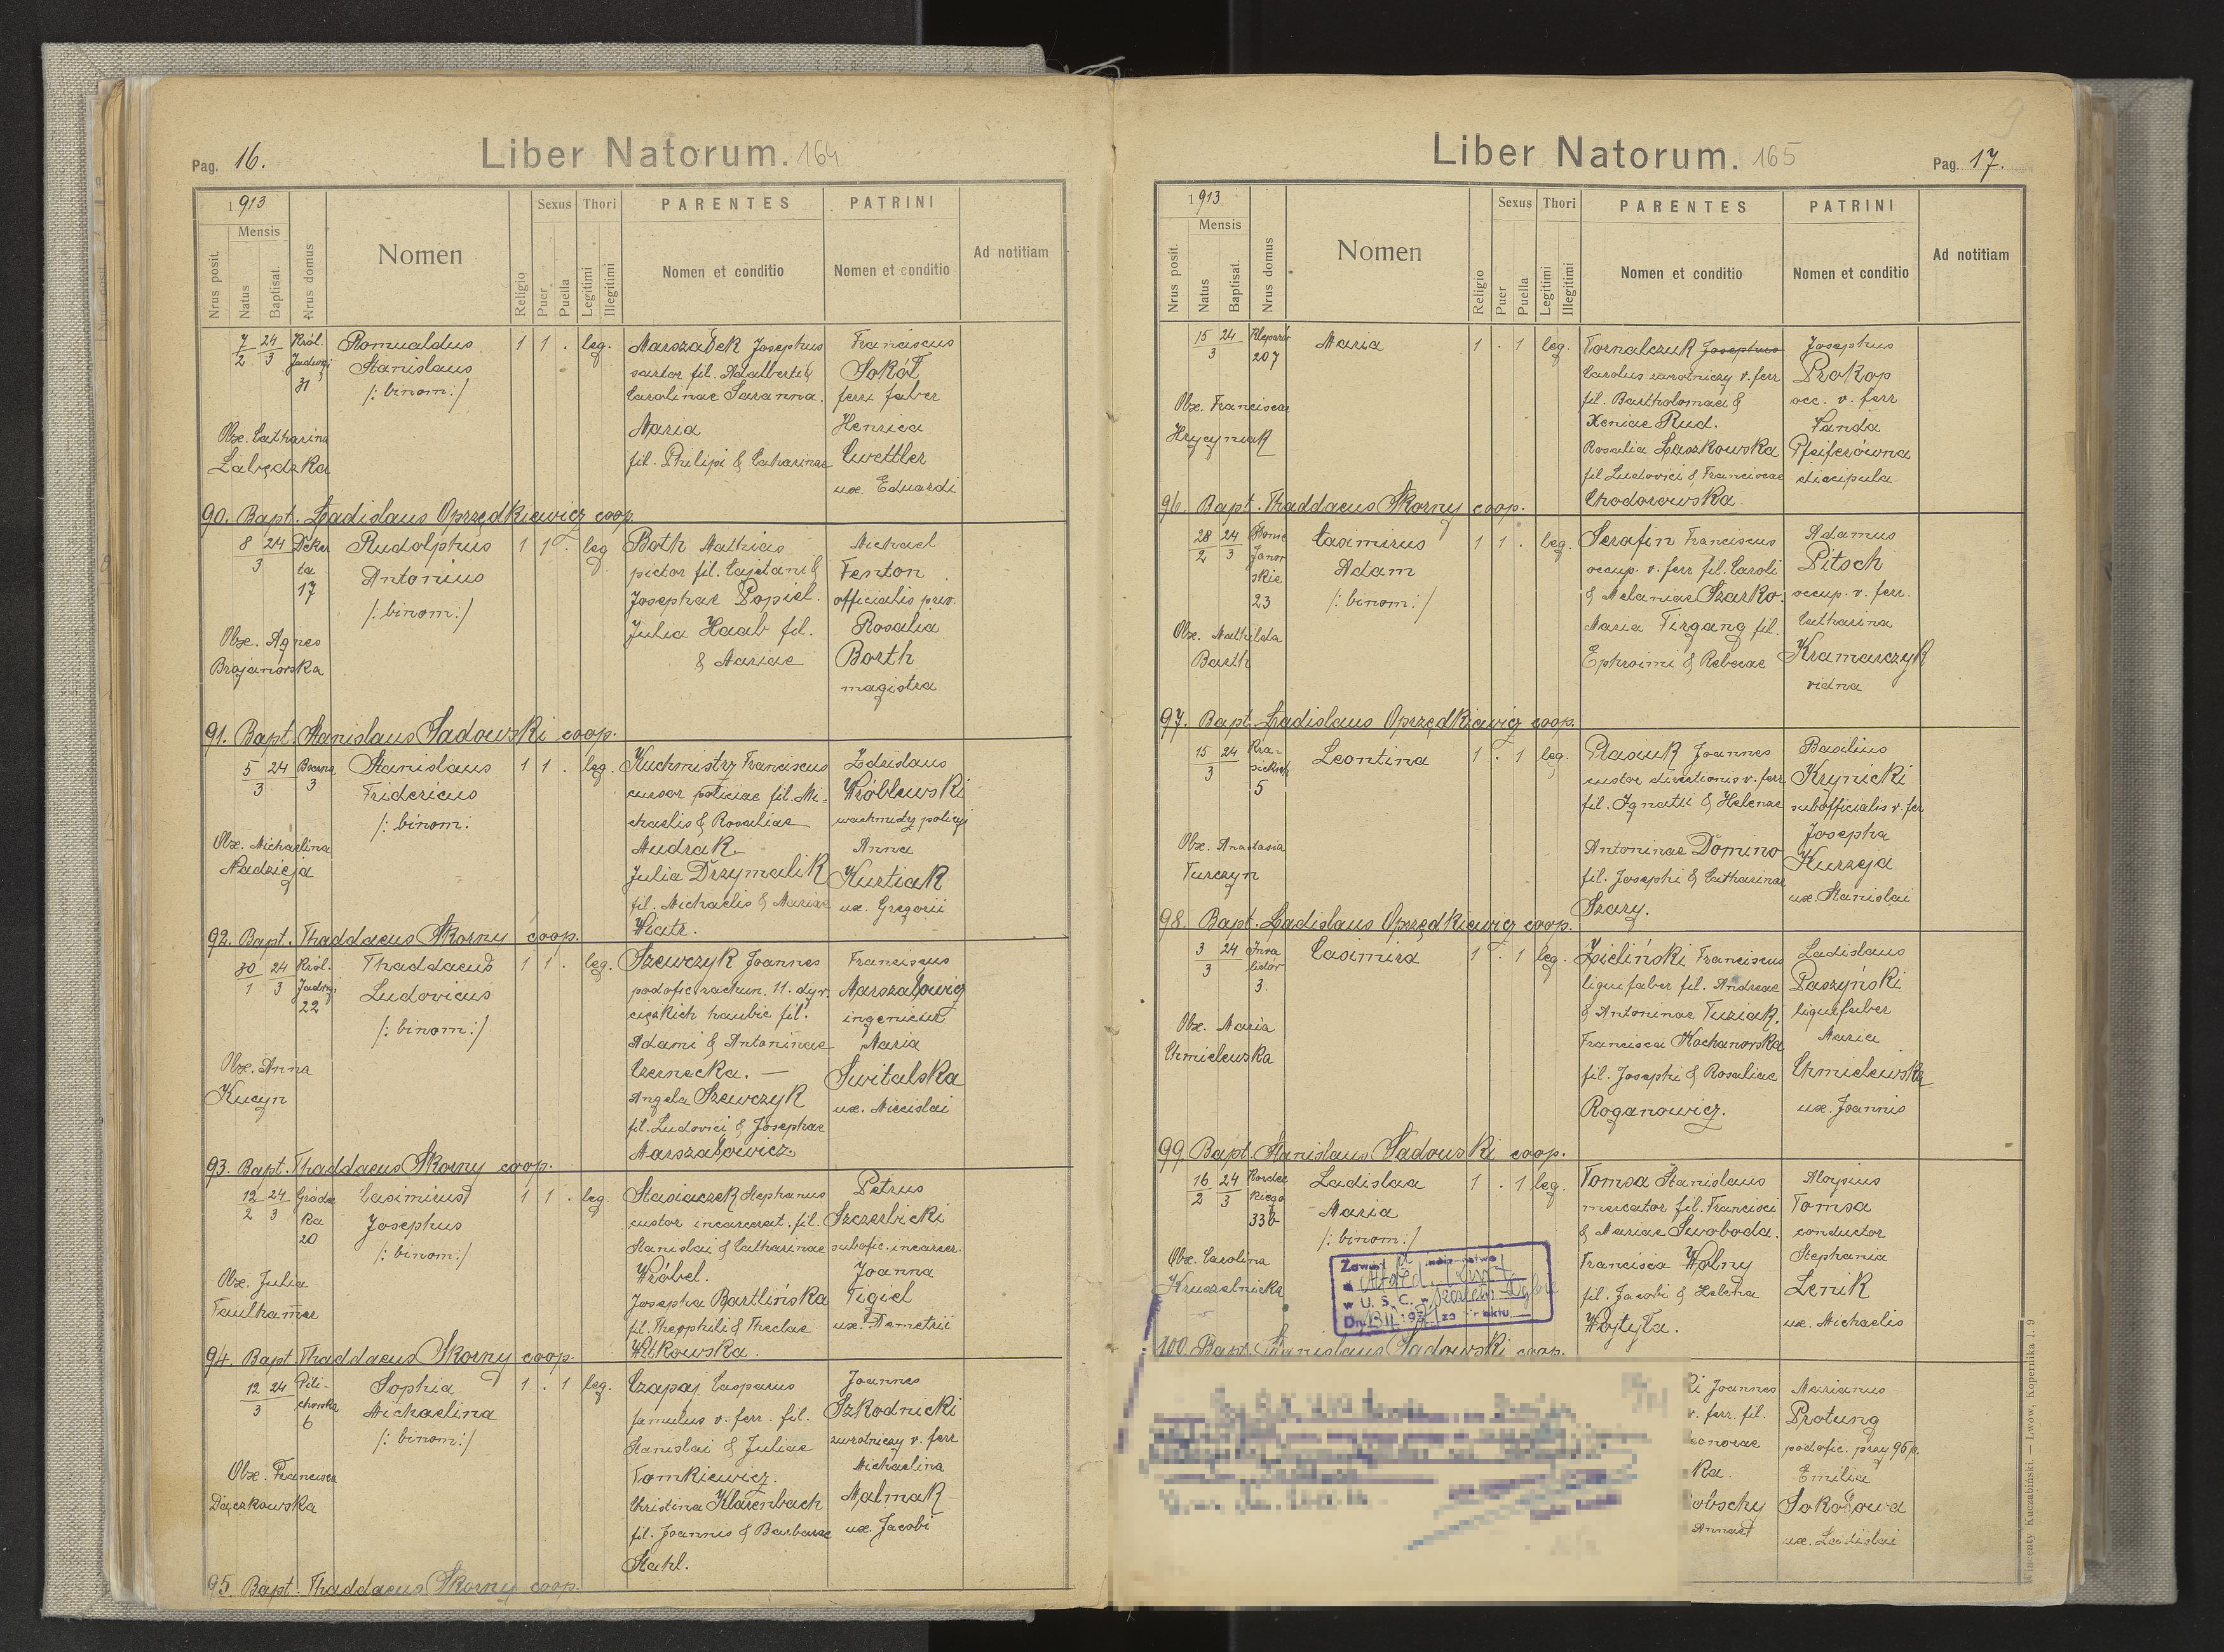 Pag. 16.
Liber Natorum. 164
1913
Mensis
Nrus posit.
Natus
Baptisat.
Nrus domus
Nomen
Religio
Sexus
Puer
Puella
Thori
Legitimi
Illegitimi
PARENTES
Nomen et conditio
PATRINI
Nomen et conditio
Ad notitiam
7/2 24/3 Król. Jadwigi 31
Romualdus
Stanislaus
/: binom:/
1 1 . leg.
Marszałek Josephus
sartor fil. Adalberti &
Carolinae Saranna.
Maria
fil. Philipi & Catharinae
Franciscus
Sokół
ferri faber
Henrica
Cwettler
ux. Eduardi
Obx. Catharina
Łabędzka
90. Bapt. Ladislaus Oprzędkiewicz coop.
8/3 24 Deker
ta
17
Rudolphus
Antonius
/: binom:/
1 1 . leg
Both Mathias
pictor fil. Cajetani &
Josephae Popiel.
Julia Haab fil.
& Mariae
Michael
Fenton
officialis priv.
Rosalia
Borth
magistra
Obx. Agnes
Brojanowska
91. Bapt. Stanislaus Sadowski coop.
5/3 24 Boczna 3
Stanislaus
Fridericus
/: binom:
1 1 . leg.
Kuchmistrz Franciscus
cursor policiae fil. Mi-
chaelis & Rosaliae
Mudrak
Julia Drzymalik
fil. Michaelis & Mariae
Wiatr.
Zdzislaus
Wróblewski
wachmistrz policyi
Anna
Kurtiak
ux. Gregorii
Obx. Michaelina
Nadzieja
92. Bapt. Thaddaeus Skorny coop.
30/1 24/3 Król. Jadwigi 22
Thaddaeus
Ludovicus
/: binom:/
1 1 . leg.
Szewczyk Joannes
podofic. rachun. 11. dyw.
ciężkich haubic fil.
Adami & Antoninae
Czernecka. —
Angela Szewczyk
fil. Ludovici & Josephae
Marszałowicz.
Franciscus
Marszałowicz
ingenieur
Maria
Switalska
ux. Miecislai
Obx. Anna
Kucyn
93. Bapt. Thaddaeus Skorny coop.
12/2 24/3 Gródec
ka
20
Casimirus
Josephus
/: binom:/
1 1 . leg.
Stasiaczek Stephanus
custor incarcerat. fil.
Stanislai & Catharinae
Wróbel.
Josepha Bartlińska
fil. Theophili & Theclae
Witkowska.
Petrus
Szczerbicki
subofic. incarcer.
Joanna
Figiel
ux. Demetrii
Obx. Julia
Faulhamer
94. Bapt. Thaddaeus Skorny coop.
12/3 24 Pili-
chowska
6
Sophia
Michaelina
/: binom:/
1 . 1 leg.
Czapaj Casparus
famulus v. ferr. fil.
Stanislai & Juliae
Tomkiewicz.
Christina Klarenbach
fil. Joannis & Barbarae
Stahl.
Joannes
Szkodnicki
zwrotniczy v. ferr
Michaelina
Malmak
ux. Jacobi
Obx. Francisca
Dączkowska
95. Bapt. Thaddaeus Skorny coop.
9
Liber Natorum. 165
Pag. 17.
1913
Mensis
Nrus posit.
Natus
Baptisat.
Nrus domus
Nomen
Religio
Sexus
Puer
Puella
Thori
Legitimi
Illegitimi
PARENTES
Nomen et conditio
PATRINI
Nomen et conditio
Ad notitiam
15/3 24 Kleparów
207
Maria
1 . 1 leg.
Tornalczuk Josephus
Carolus zwrotniczy v. ferr
fil. Bartholomaei &
Xeniae Rud.
Rosalia Laszkowska
fil Ludovici & Franciscae
Chodorowska
Josephus
Prokop
occ. v. ferr
Vanda
Pfeiferówna
discipula
Obx. Francisca
Hrycyniak
96. Bapt. Thaddaeus Skorny coop.
28/2 24/3
Janow
skie
23
Casimirus
Adam
/: binom:/
1 1 . leg.
Serafin Franciscus
occup. v. ferr fil. Caroli
& Melaniae Szarko.
Maria Tirgang fil.
Ephroimi & Rebecae
Adamus
Pitsch
occup. v. ferr.
Catharina
Kramarczyk
vidua
Obx. Mathilda
Barth
97. Bapt. Ladislaus Oprzędkiewicz coop.
15/3 24 Kra-
sickich
5
Leontina
1 . 1 leg.
Ptasiuk Joannes
custor directionis v. ferr
fil. Ignatii & Helenae
Antoninae Domino
fil. Josephi & Catharinae
Szary.
Basilius
Krynicki
subofficialis v. fer
Josepha
Kurzeja
ux. Stanislai
Obx. Anastasia
Turczyn
98. Bapt. Ladislaus Oprzędkiewicz coop.
3/3 24 Inwa
lidów
3.
Casimira
1 . 1 leg.
Zieliński Franciscus
lignifaber fil. Andreae
& Antoninae Tuziak.
Francisca Kochanowska
fil. Josephi & Rosaliae
Roganowicz.
Ladislaus
Paszyński
lignifaber
Maria
Chmielewska
ux. Joannis
Obx. Maria
Chmielewska
99. Bapt. Stanislaus Sadowski coop.
16/2 24/3 Kordec
kiego
33b
Ladislaa
Maria
/: binom:/
1 . 1 leg.
Tomsa Stanislaus
mercator fil. Francisci
& Mariae Swoboda.
Francisca Wolny
fil. Jacobi & Helena
Wojtyła.
Aloysius
Tomsa
conductor
Stephania
Lenik
ux. Michaelis
Obx. Carolina
Kruszelnicka
w U. S. C. w
100. Bapt. Stanislaus Sadowski coop.
ki Joannes
v. ferr. fil.
eonorae
ka.
obschy
Annae
Marianus
Protung
podofic. przy 95 p.
Emilia
Sokołowa
ux. Ladislai
Wincenty Kuczabiński. — Lwów, Kopernika 1. 9